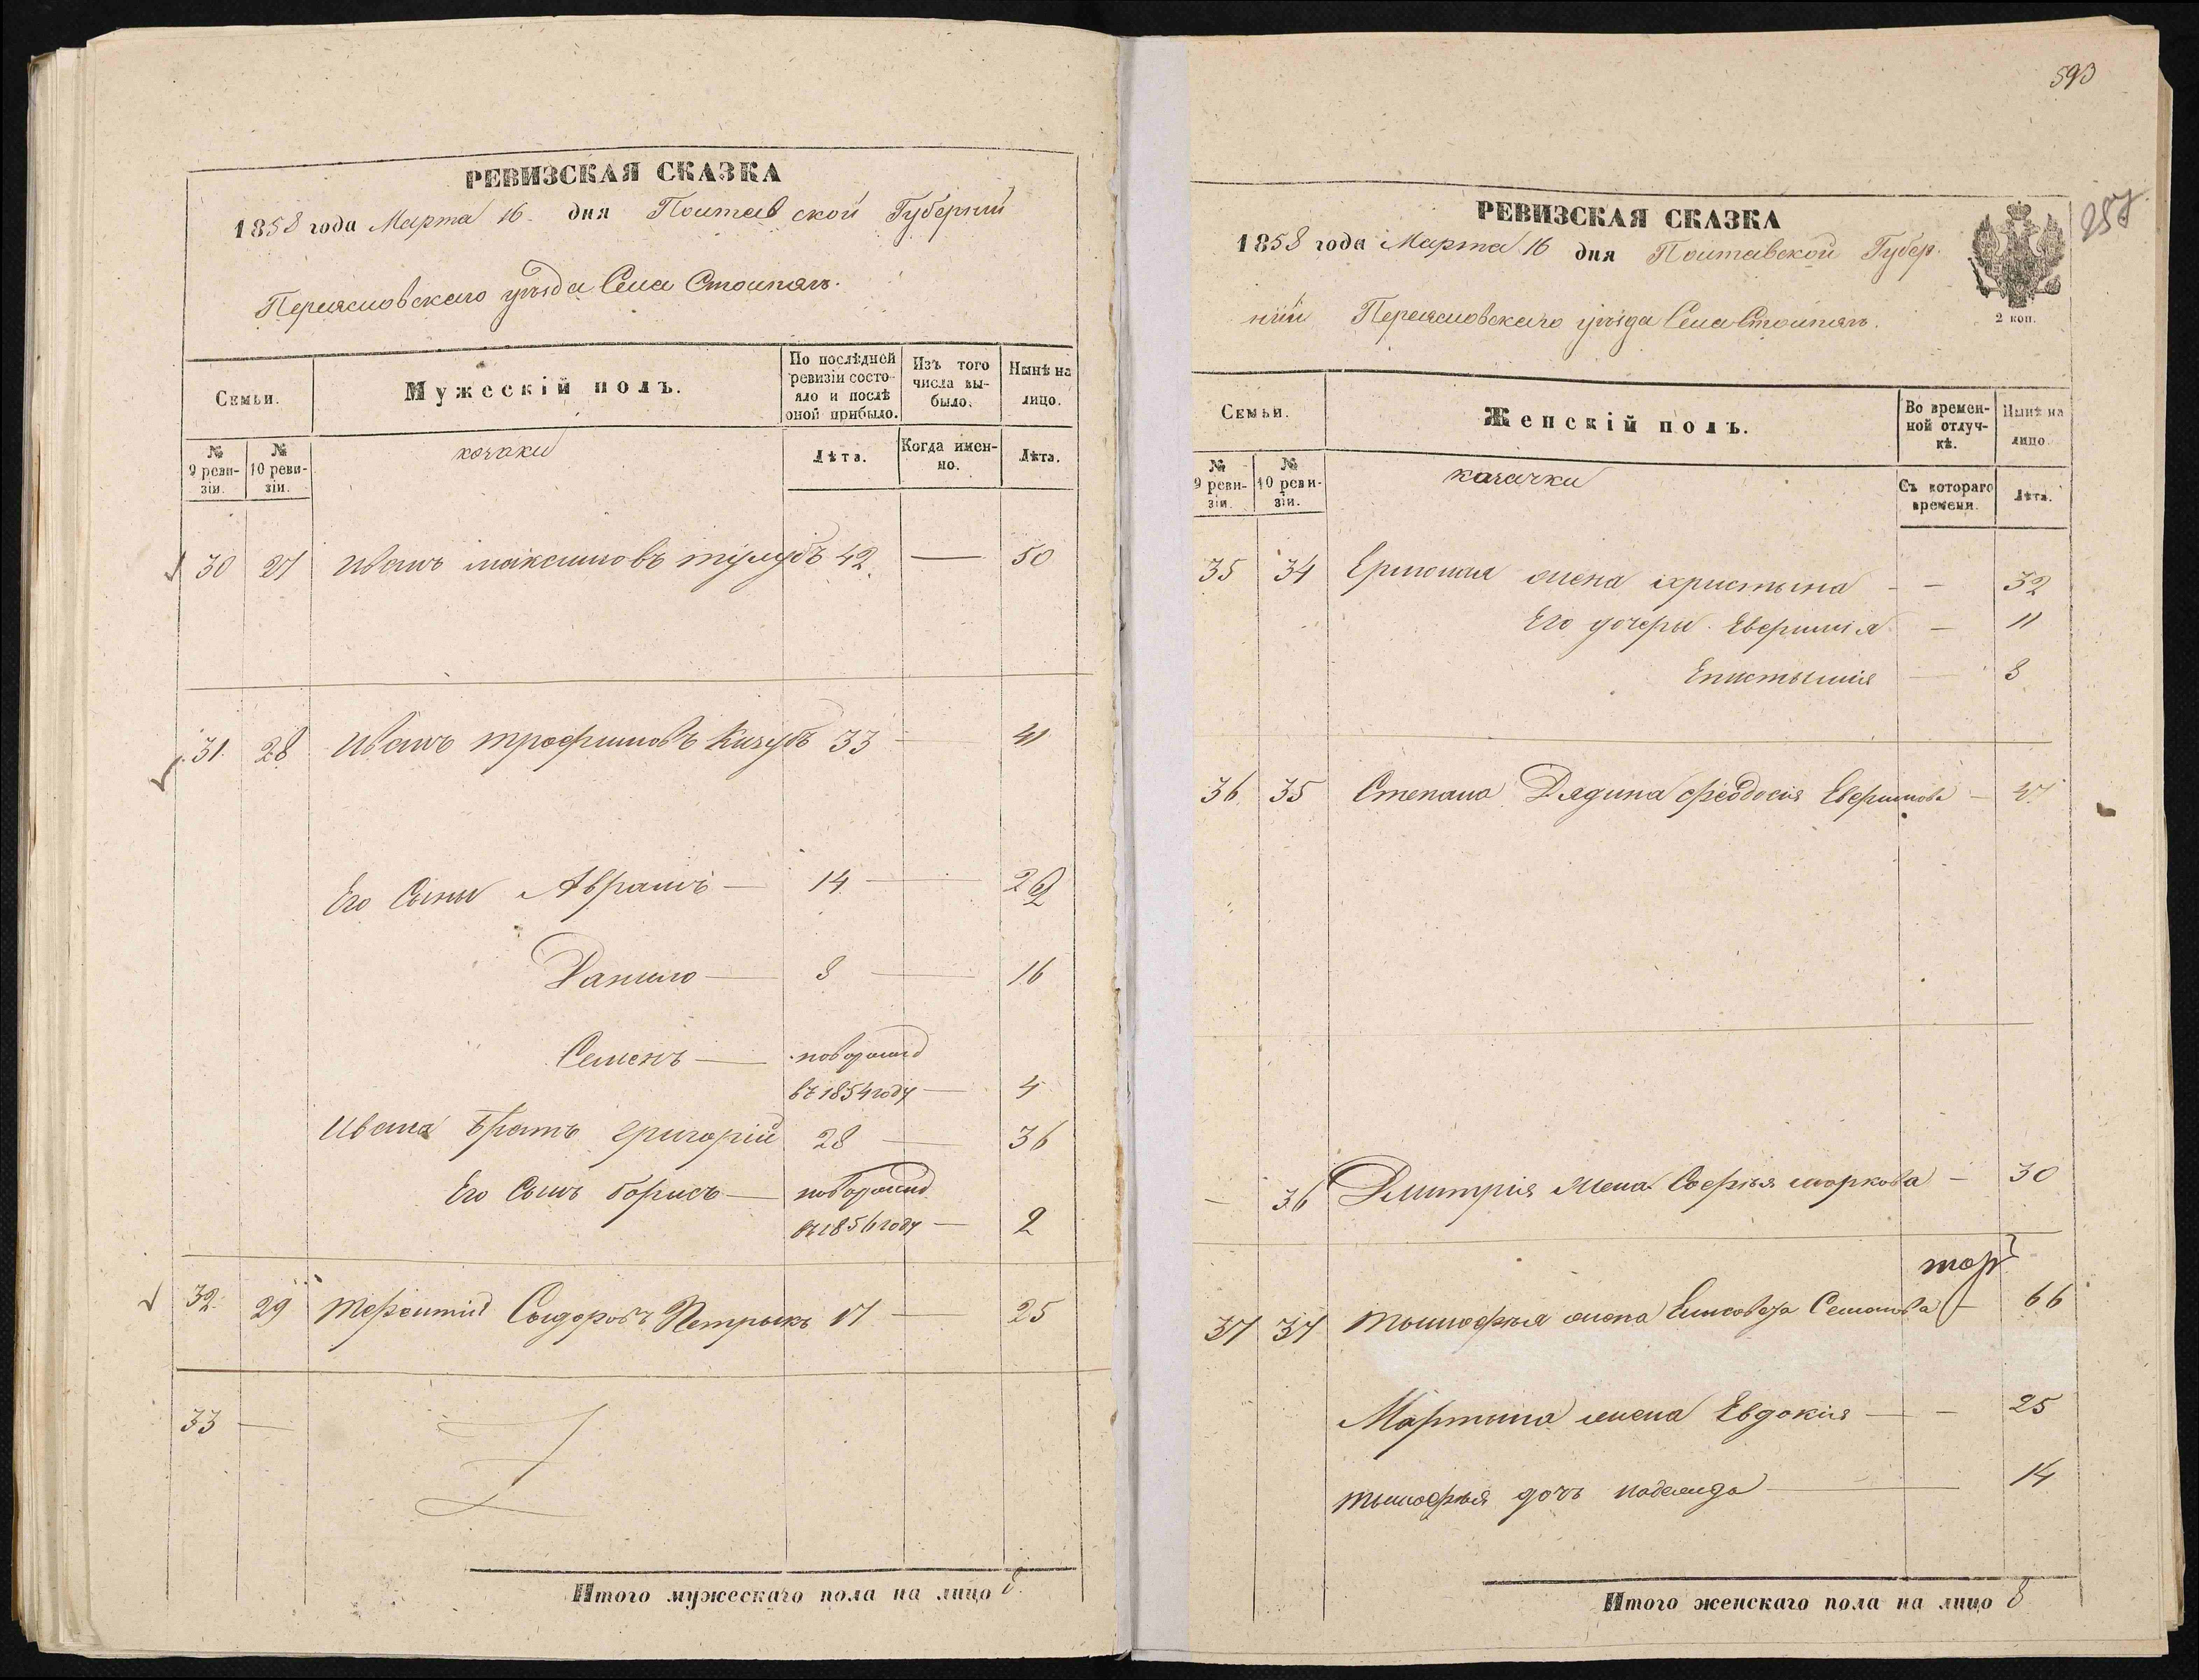 РЕВИЗСКАЯ СКАЗКА
1858 года Марта 16 дня Полтавской Губернии
Переяславскаго уѣзда Села Столпягъ.
Семьи.
Мужескій полъ.
По послѣдней ревизіи состояло и послѣ оной прибыло.
Изъ того числа выбыло.
Нынѣ на лицо.
№ 9 ревизіи.
№ 10 ревизіи.
козаки
Лѣта.
Когда именно.
Лѣта.
30 27 Иванъ Максимовъ 42 — 50
31. 28 Иванъ Трофимовъ Кизубъ 33 — 41
Его Сыны Аврамъ — 14 — 22
Данило — 8 — 16
Семенъ — новорожд
въ 1854 году — 4
Ивана Братъ григорій 28 — 36
Его Сынъ борисъ — новорожд
въ 1856 году — 2
32. 29 терентий Сыдоровъ Петрыкъ 17 — 25
33 —
Итого мужескаго пола на лицо 8.
593
257
РЕВИЗСКАЯ СКАЗКА
1858 года Марта 16 дня Полтавской Губер
нии Переяславскаго уѣзда Села Столпягъ.
2 коп.
Семьи.
Женскій полъ.
Во временной отлучкѣ.
Нынѣ на лицо.
№ 9 ревизіи.
№ 10 ревизіи.
казачки
Съ котораго времени.
Лѣта.
35 34 Ермолая жена христына - — 32
Его дочеры Евфимия — 11
Епистымия — 8
36 35 Степана Дядина феодосия Евфимова —
— 36 Дмитрия жена Софья маркова — 30
37 37 тымофья жена Елисавета Семенова — 66
Мартына жена Евдокия — — 25
тымофья дочь надежда — 14
Итого женскаго пола на лицо 8